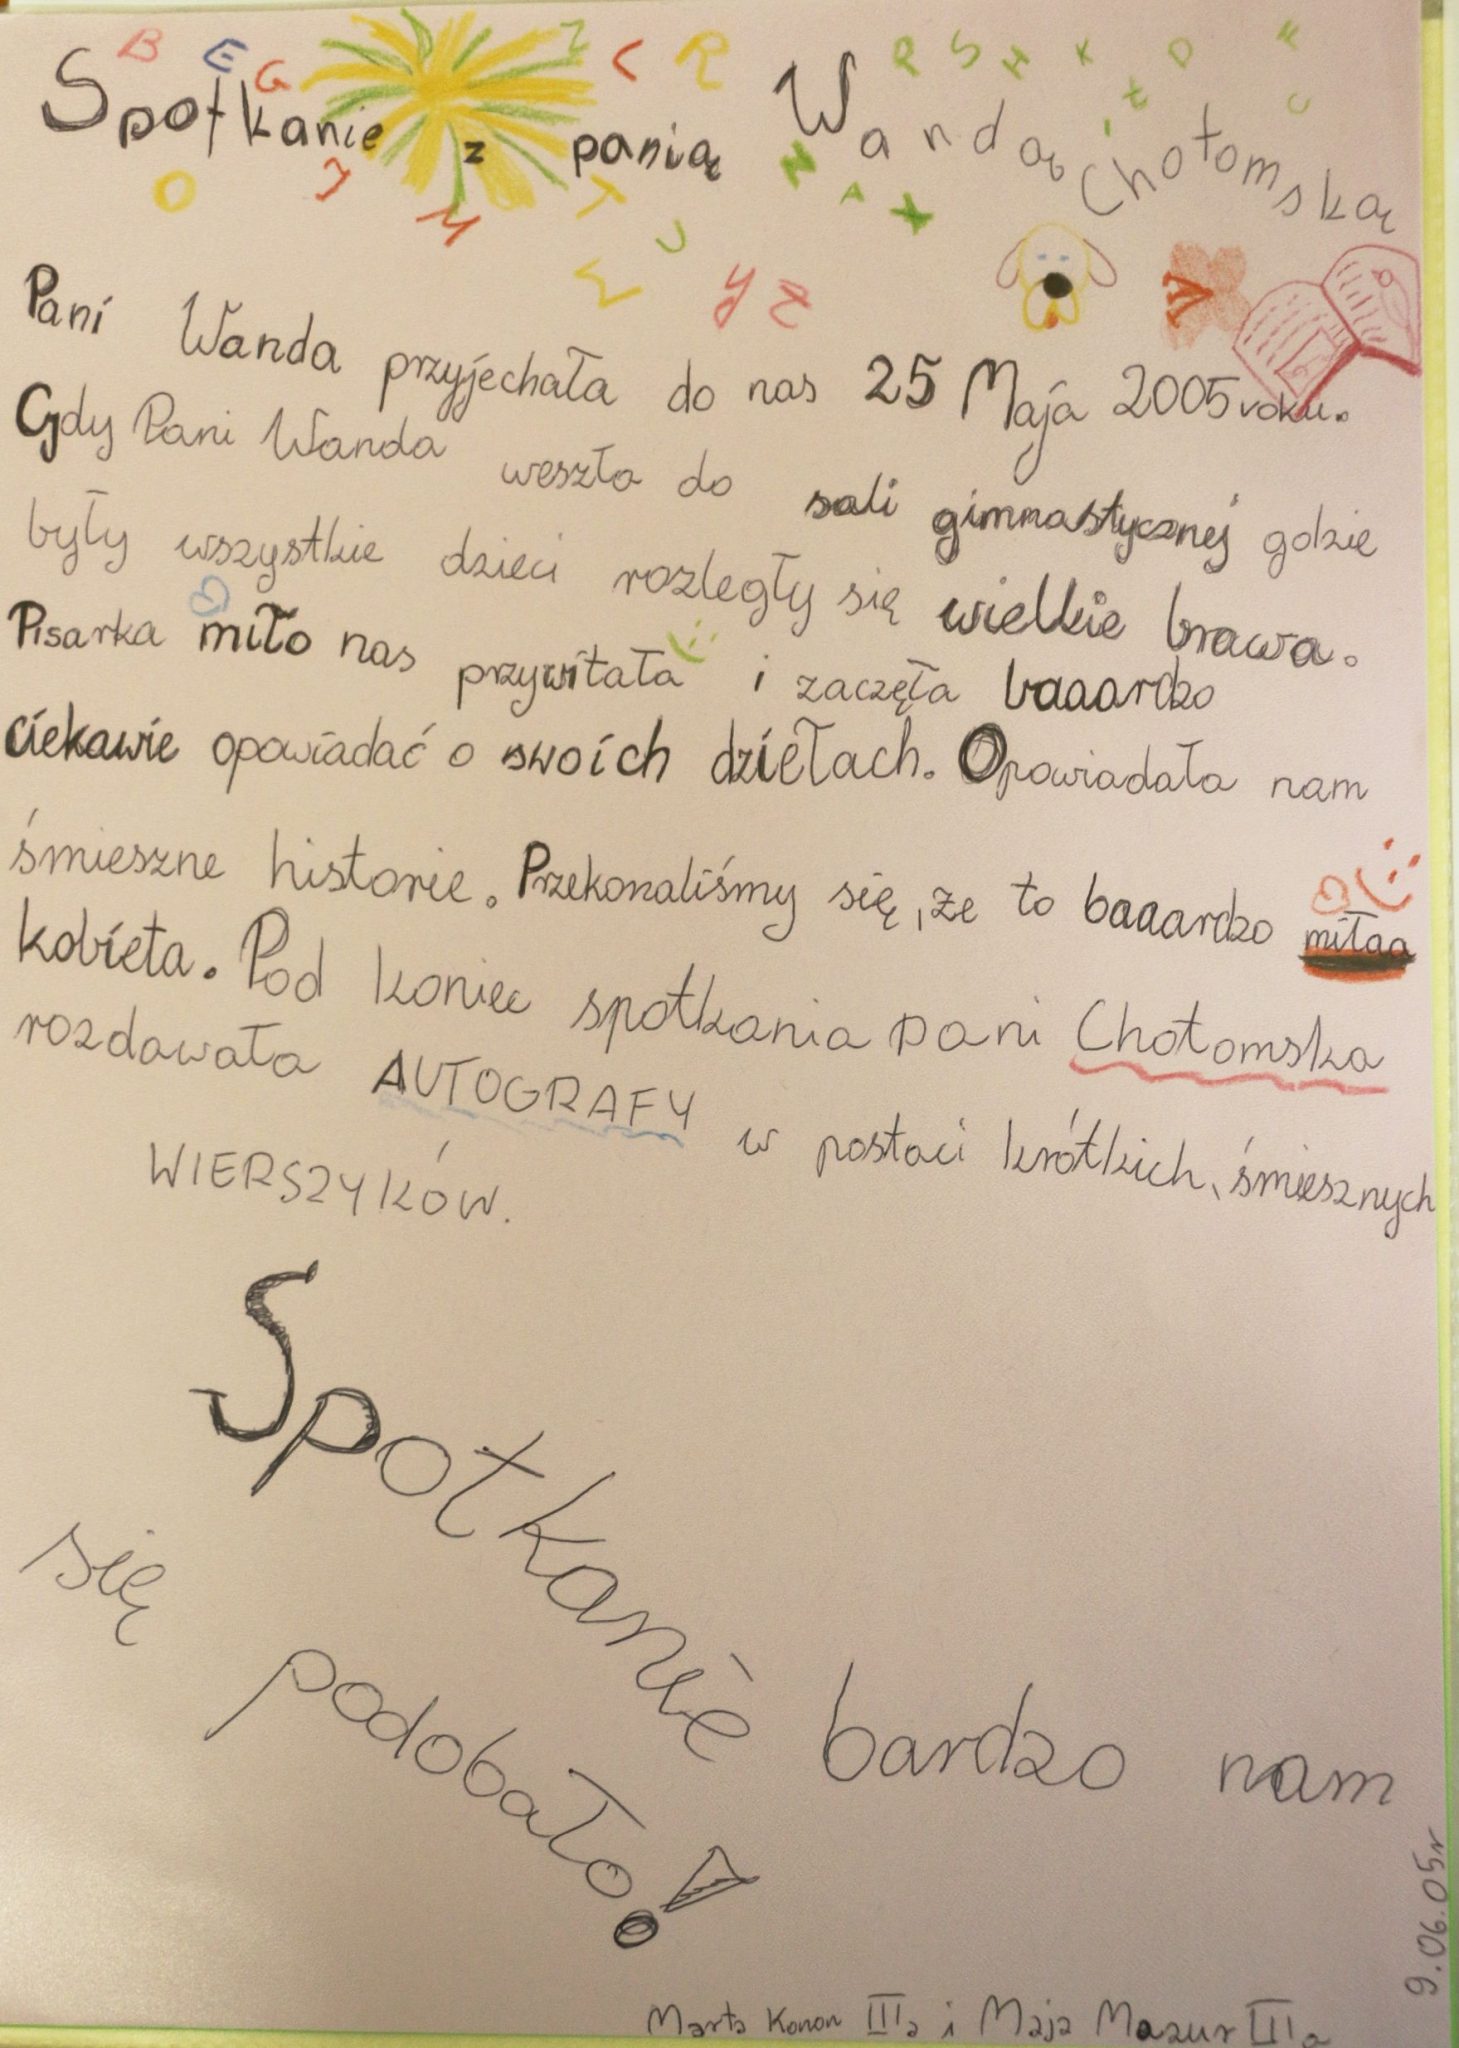 Spotkanie z panią Wandą Chotomską
B E G Z C R R S H K Ł D F C
O J M T U N A X
W Y Z
Pani Wanda przyjechała do nas 25 Maja 2005 roku.
Gdy Pani Wanda weszła do sali gimnastycznej gdzie
były wszystkie dzieci rozległy się wielkie brawa.
Pisarka miło nas przywitała i zaczęła baaardzo
ciekawie opowiadać o swoich dziełach. Opowiadała nam
śmieszne historie. Przekonaliśmy się, że to baaardzo miłaa
kobieta. Pod koniec spotkania pani Chotomska
rozdawała AUTOGRAFY w postaci krótkich, śmiesznych
WIERSZYKÓW.
Spotkanie bardzo nam
się podobało!
9.06.05r
Marta Konon IIIa i Maja Mazur IIIa